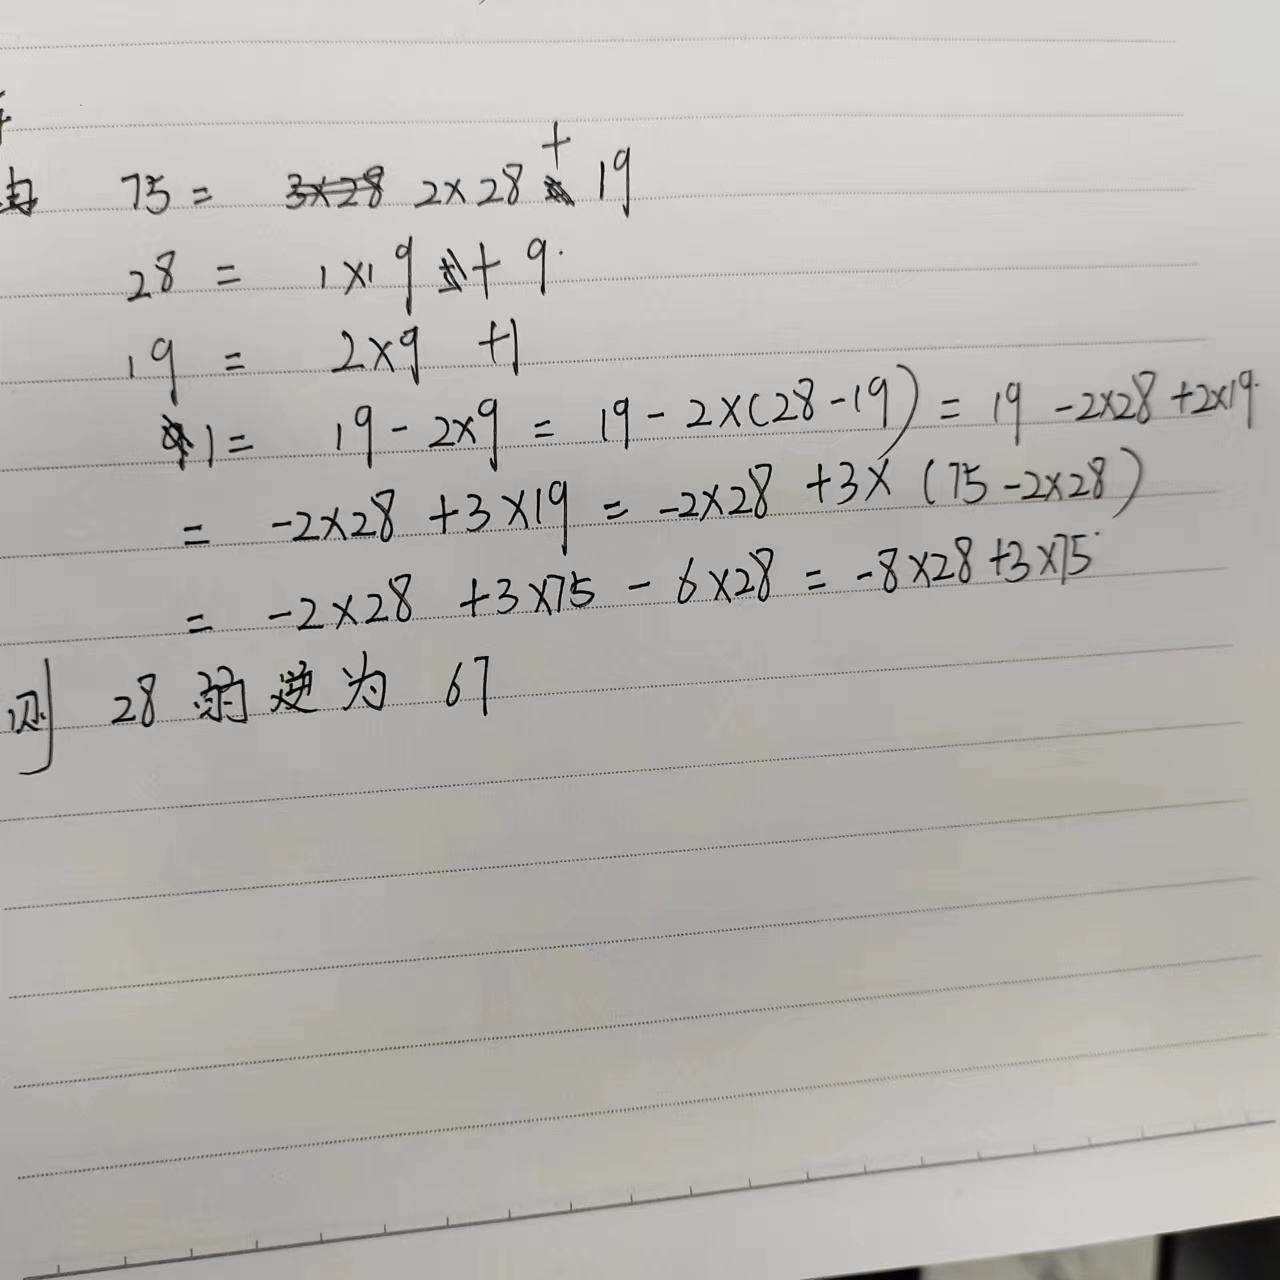 由 75 = 2×28 + 19
28 = 1×19 + 9.
19 = 2×9 +1
1 = 19 - 2×9 = 19 - 2×(28-19) = 19 -2×28 +2×19.
= -2×28 +3×19 = -2×28 +3× (75-2×28)
= -2×28 +3×75 - 6×28 = -8×28+3×75
则 28 的逆为 67